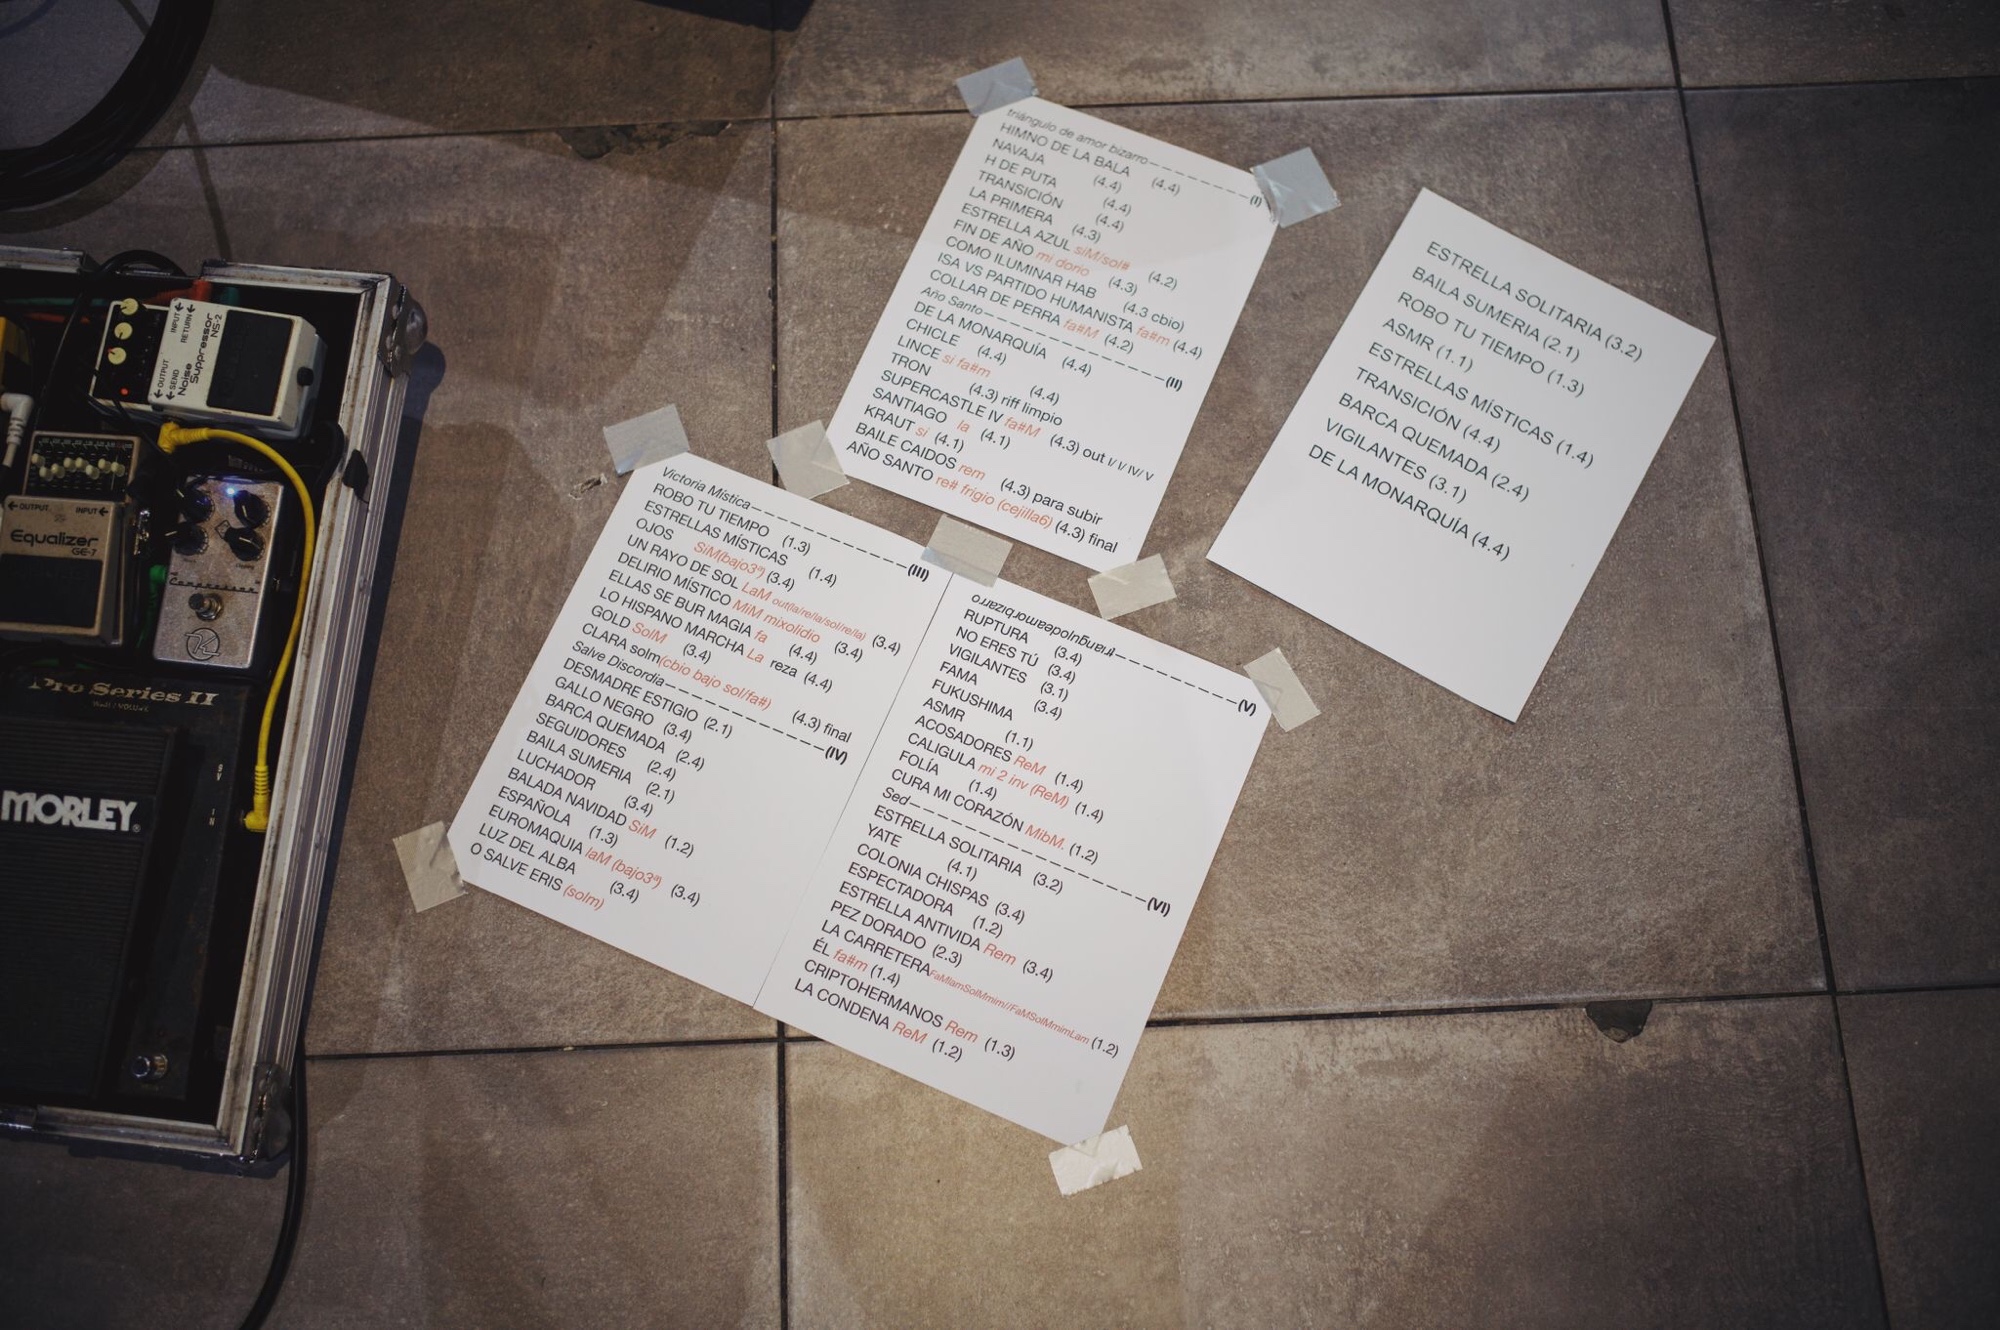 triángulo de amor bizarro (I)
HIMNO DE LA BALA (4.4)
NAVAJA (4.4)
H DE PUTA (4.4)
TRANSICIÓN (4.4)
LA PRIMERA (4.3)
ESTRELLA AZUL siM/sol# (4.2)
FIN DE AÑO mi dorio (4.3)
COMO ILUMINAR HAB (4.3 cbio)
ISA VS PARTIDO HUMANISTA fa#m (4.4)
COLLAR DE PERRA fa#M (4.2)
Año Santo (II)
DE LA MONARQUÍA (4.4)
CHICLE (4.4)
LINCE si fa#m (4.4)
TRON (4.3) riff limpio
SUPERCASTLE IV fa#M (4.3) out I/ I/ IV/ V
SANTIAGO la (4.1)
KRAUT si (4.1)
BAILE CAIDOS rem (4.3) para subir
AÑO SANTO re# frigio (cejilla6) (4.3) final
ESTRELLA SOLITARIA (3.2)
BAILA SUMERIA (2.1)
ROBO TU TIEMPO (1.3)
ASMR (1.1)
ESTRELLAS MÍSTICAS (1.4)
TRANSICIÓN (4.4)
BARCA QUEMADA (2.4)
VIGILANTES (3.1)
DE LA MONARQUÍA (4.4)
Victoria Mística (III)
ROBO TU TIEMPO (1.3)
ESTRELLAS MÍSTICAS (1.4)
OJOS SiM(bajo3ª) (3.4)
UN RAYO DE SOL LaM out(la/re/la/sol/re/la) (3.4)
DELIRIO MÍSTICO MiM mixolidio (3.4)
ELLAS SE BUR MAGIA fa (4.4)
LO HISPANO MARCHA La reza (4.4)
GOLD SolM (3.4)
CLARA solm(cbio bajo sol/fa#) (4.3) final
Salve Discordia (IV)
DESMADRE ESTIGIO (2.1)
GALLO NEGRO (3.4)
BARCA QUEMADA (2.4)
SEGUIDORES (2.4)
BAILA SUMERIA (2.1)
LUCHADOR (3.4)
BALADA NAVIDAD SiM (1.2)
ESPAÑOLA (1.3)
EUROMAQUIA laM (bajo3ª) (3.4)
LUZ DEL ALBA (3.4)
O SALVE ERIS (solm)
triánguloudeamorbizarro (V)
RUPTURA (3.4)
NO ERES TÚ (3.4)
VIGILANTES (3.1)
FAMA (3.4)
FUKUSHIMA
ASMR (1.1)
ACOSADORES ReM (1.4)
CALIGULA mi 2 inv (ReM) (1.4)
FOLÍA (1.4)
CURA MI CORAZÓN MibM. (1.2)
Sed (VI)
ESTRELLA SOLITARIA (3.2)
YATE (4.1)
COLONIA CHISPAS (3.4)
ESPECTADORA (1.2)
ESTRELLA ANTIVIDA Rem (3.4)
PEZ DORADO (2.3)
LA CARRETERA FaMlamSolMmim//FaMSolMmimLam (1.2)
ÉL fa#m (1.4)
CRIPTOHERMANOS Rem (1.3)
LA CONDENA ReM (1.2)
INPUT
RETURN
OUTPUT
SEND
Noise Suppressor
NS-2
OUTPUT
INPUT
Equalizer
GE-7
Compressor
Pro Series II
WAH / VOLUME
IN
MORLEY